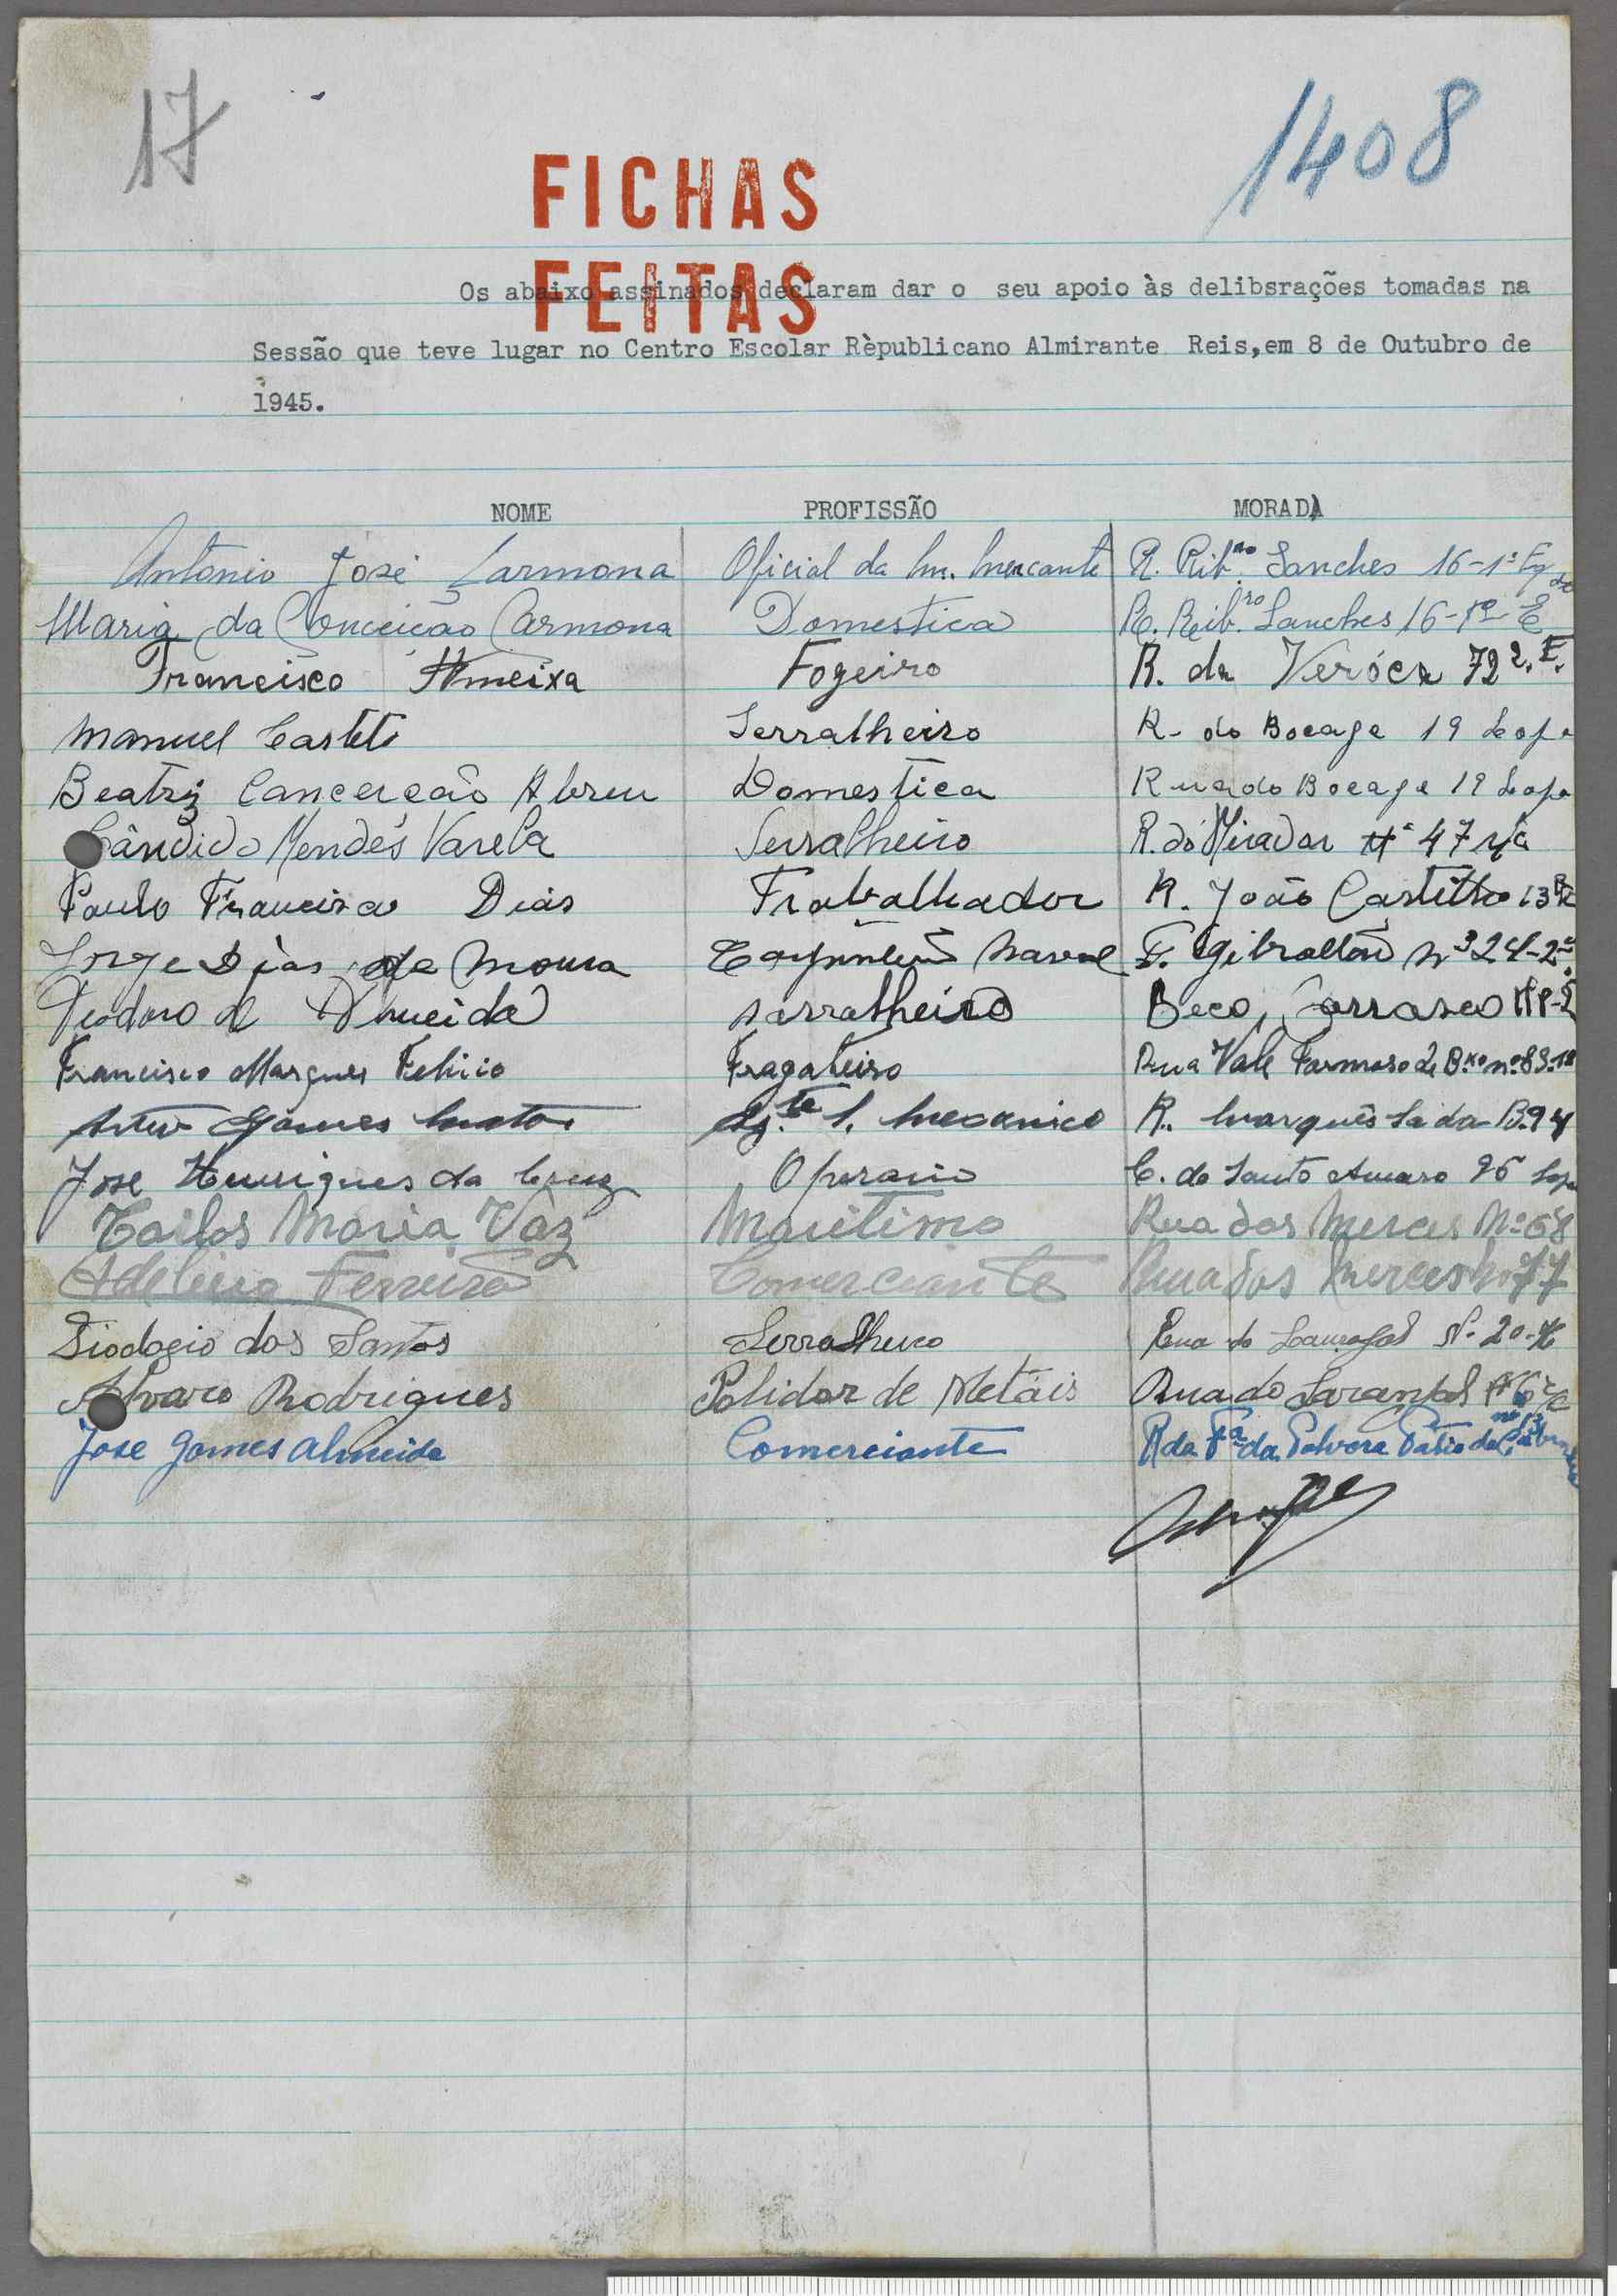 17
1408
FICHAS
FEITAS
Os abaixo assinados declaram dar o seu apoio às delibsrações tomadas na
Sessão que teve lugar no Centro Escolar Rèpublicano Almirante Reis,em 8 de Outubro de
1945.
NOME PROFISSÃO MORADA
António José Carmona Oficial da M. Mercante R. Rib.ro Sanches 16-1º
Maria da Conceição Carmona Domestica R. Reib.ro Sanches 16-1º E
Francisco Ameixa Fogeiro R. da Veróca 72 2. E.
Manuel Casteto Serralheiro R. do Bocage 19
Beatriz Cancerção Abreu Domestica Rua do Bocage 19
Cândido Mendes Varela Serralheiro R. do Mirador Nº 47 r/c
Paulo Francisco Dias Trabalhador R. João Castilho 13
Jorge Dias de Moura Carpinteiro Naval T. Gibraltar 24-2º
Teodoro d Almeida sarralheiro Beco Carrasco
Francisco Marques Felicio Fragateiro Rua Vale Formoso de B.xo nº 83-1º
Artur Gomes Mecanico R. Marquês Sá da B. 94
Jose Henriques da Cruz Operario C. de Santo Amaro 96
Carlos Maria Vaz Maritimo Rua das Merces Nº 68
Adelina Ferreira Comerciante Rua das Merces Nº 77
Diodogio dos Santos Serralheiro Rua do N. 20
Alvaro Rodrigues Polidor de Metais Rua do
Jose Gomes Almeida Comerciante R da Fª da Polvora Patio